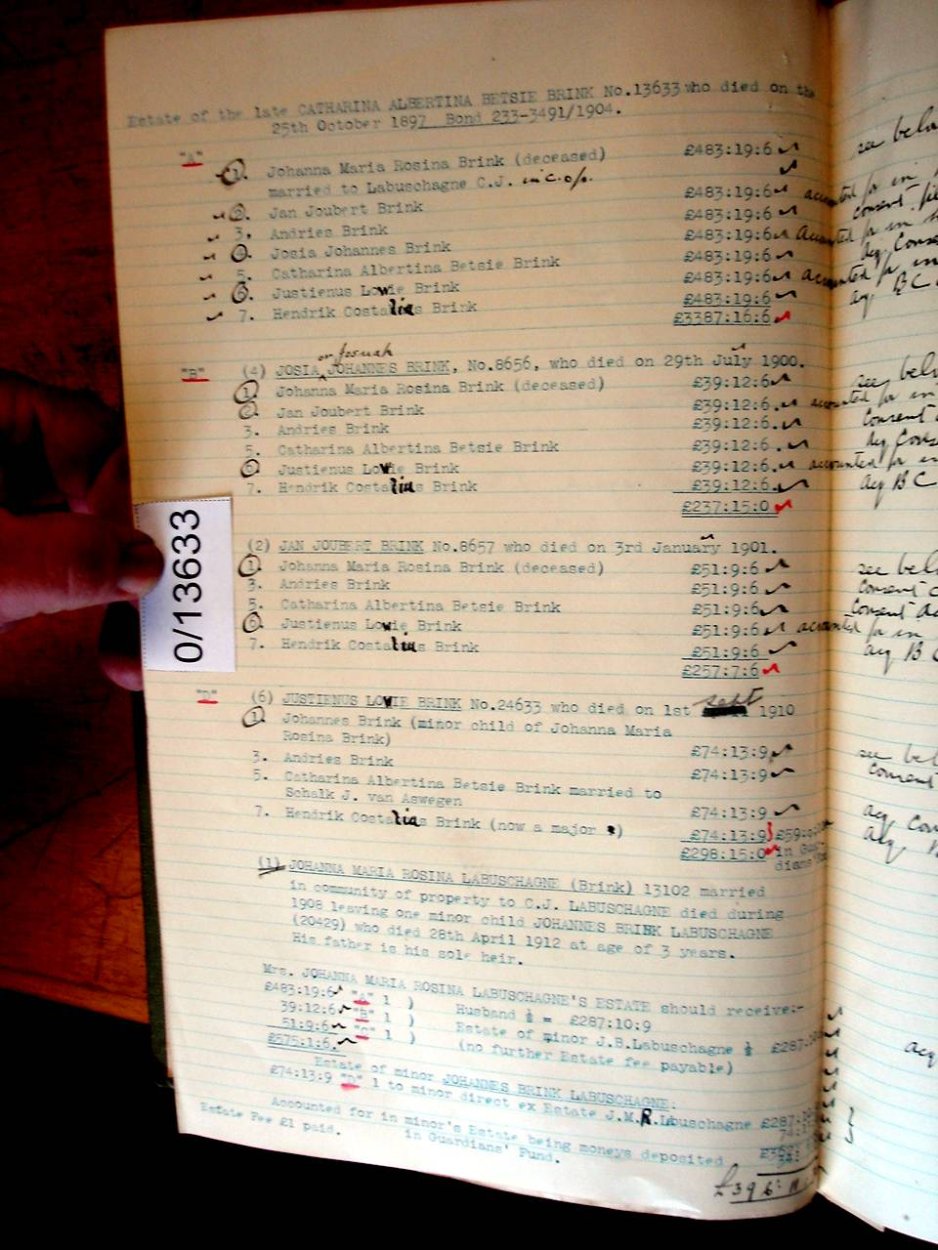 Estate of the late CATHARINA ALBERTINA BETSIE BRINK No.13633 who died on the
25th October 1897 Bond 233-3491/1904.
"A" 1. Johanna Maria Rosina Brink (deceased) £483:19:6 see below
married to Labuschagne C.J. in c.o/p.
2. Jan Joubert Brink £483:19:6 accounted for in
3. Andries Brink £483:19:6 consent
4. Josia Johannes Brink £483:19:6 accounted for in
5. Catharina Albertina Betsie Brink £483:19:6
6. Justienus Lowie Brink £483:19:6 accounted for in
7. Hendrik Costalias Brink £483:19:6 acq BC
£3387:16:6
or Josuah
"B" (4) JOSIA JOHANNES BRINK, No.8656, who died on 29th July 1900.
1. Johanna Maria Rosina Brink (deceased) £39:12:6 see below
2. Jan Joubert Brink £39:12:6. accounted for in
3. Andries Brink £39:12:6. consent
5. Catharina Albertina Betsie Brink £39:12:6.
6. Justienus Lowie Brink £39:12:6. accounted for in
7. Hendrik Costalias Brink £39:12:6. acq BC
£237:15:0
0/13633
(2) JAN JOUBERT BRINK No.8657 who died on 3rd January 1901.
1. Johanna Maria Rosina Brink (deceased) £51:9:6 see below
3. Andries Brink £51:9:6 consent
5. Catharina Albertina Betsie Brink £51:9:6 consent
6. Justienus Lowie Brink £51:9:6 accounted for in
7. Hendrik Costalias Brink £51:9:6 acq BC
£257:7:6
"D" (6) JUSTIENUS LOWIE BRINK No.24633 who died on 1st Sept 1910
1. Johannes Brink (minor child of Johanna Maria
Rosina Brink) £74:13:9 see below
3. Andries Brink £74:13:9 consent
5. Catharina Albertina Betsie Brink married to
Schalk J. van Aswegen £74:13:9 acq
7. Hendrik Costalias Brink (now a major) £74:13:9 acq
£298:15:0 in
(1) JOHANNA MARIA ROSINA LABUSCHAGNE (Brink) 13102 married
in community of property to C.J. LABUSCHAGNE died during
1908 leaving one minor child JOHANNES BRINK LABUSCHAGNE
(20429) who died 28th April 1912 at age of 3 years.
His father is his sole heir.
Mrs. JOHANNA MARIA ROSINA LABUSCHAGNE'S ESTATE should receive:-
£483:19:6 "A" 1 ) Husband ½ = £287:10:9
39:12:6 "B" 1 ) Estate of minor J.B.Labuschagne ½
51:9:6 "C" 1 ) (no further Estate fee payable)
£575:1:6. acq
Estate of minor JOHANNES BRINK LABUSCHAGNE:
£74:13:9 "D" 1 to minor direct ex Estate J.M.R.Labuschagne
Accounted for in minor's Estate being moneys deposited
Estate Fee £1 paid. in Guardians' Fund.